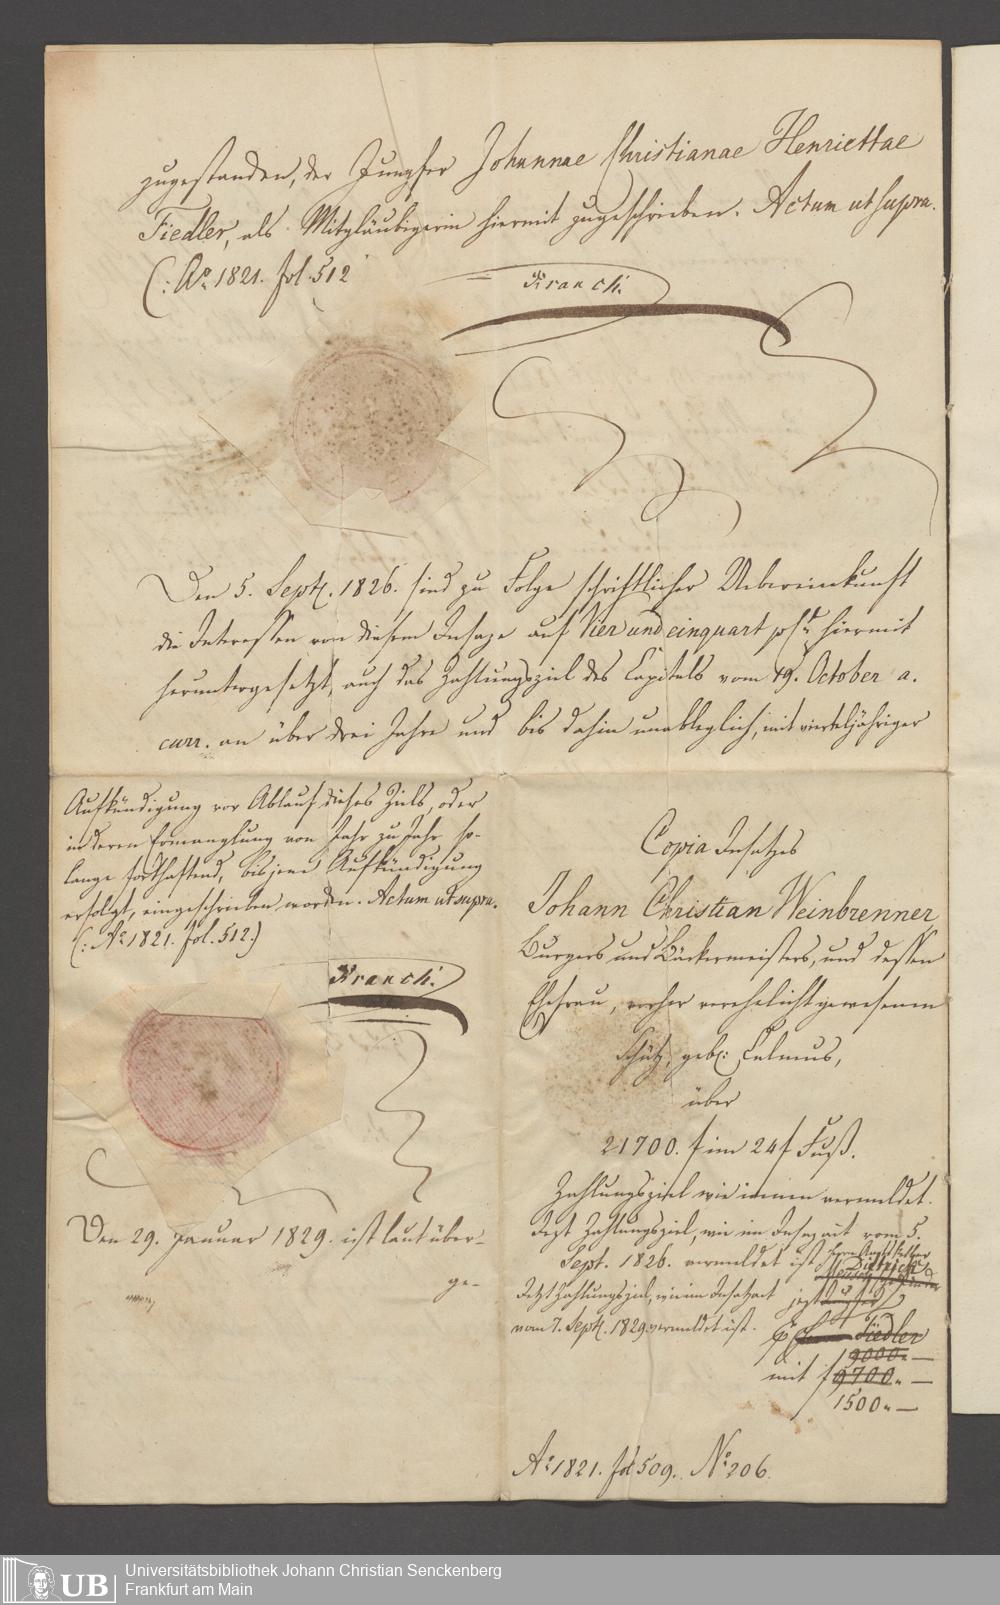 zugestanden, der Jungfer Johannae Christianae Henriettae
Fiedler, als Mitgläubigerin hiermit zugeschrieben. Actum ut supra.
(: Ao. 1821. fol. 512
Kranch.
Den 5. Sept. 1826. sind zu Folge schriftlicher Uebereinkunft
die Interessen von diesem Insaze auf Vier und einquart hiermit
heruntergesetzt, auch das Zahlungsziel des Capitals vom 19. October a.
curr. an über drei Jahre und bis dahin unableglich, mit vierteljähriger
Aufkündigung vor Ablauf dieses Ziels, oder
in deren Ermanglung von Jahr zu Jahr so-
lange forthaftend, bis jene Aufkündigung
erfolgt, eingeschrieben worden. Actum ut supra.
(: Ao 1821. fol. 512.)
Kranch.
Den 29. Januar 1829. ist laut über-
ge-
Copia Insatzes
Johann Christian Weinbrenner
Burgers und Bäckermeisters, und dessen
Ehefrau, vorher verehelicht gewesenen
Schütz, geb.
über
21700. f im 24 f Fuß.
Zahlungsziel wie innen vermeldet.
Jezt Zahlungsziel, wie im Insazact vom 5.
Sept. 1826. vermeldet ist
Jetzt Zahlungsziel, wie im Insatzact
vom 7. Sept. 1829 vermeldet ist.
jezt
Dietrich
Fiedler
9000. —
mit f 9700. —
1500. —
Ao 1821. fol 509. No. 206.
Universitätsbibliothek Johann Christian Senckenberg
Frankfurt am Main
UB